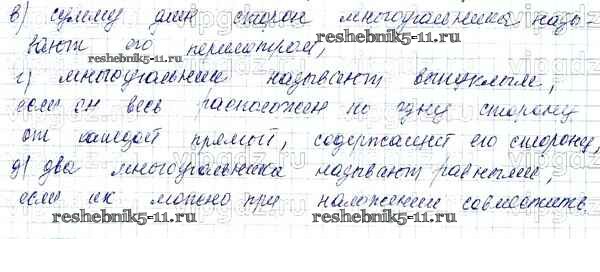 в) сумму длин сторон многоугольника назы-
вают его периметром,
reshebnik5-11.ru
г) многоугольник называют выпуклым,
если он весь расположен по одну сторону
от каждой прямой, содержащей его сторону,
д) два многоугольника называют равными,
если их можно при наложении совместить.
reshebnik5-11.ru reshebnik5-11.ru